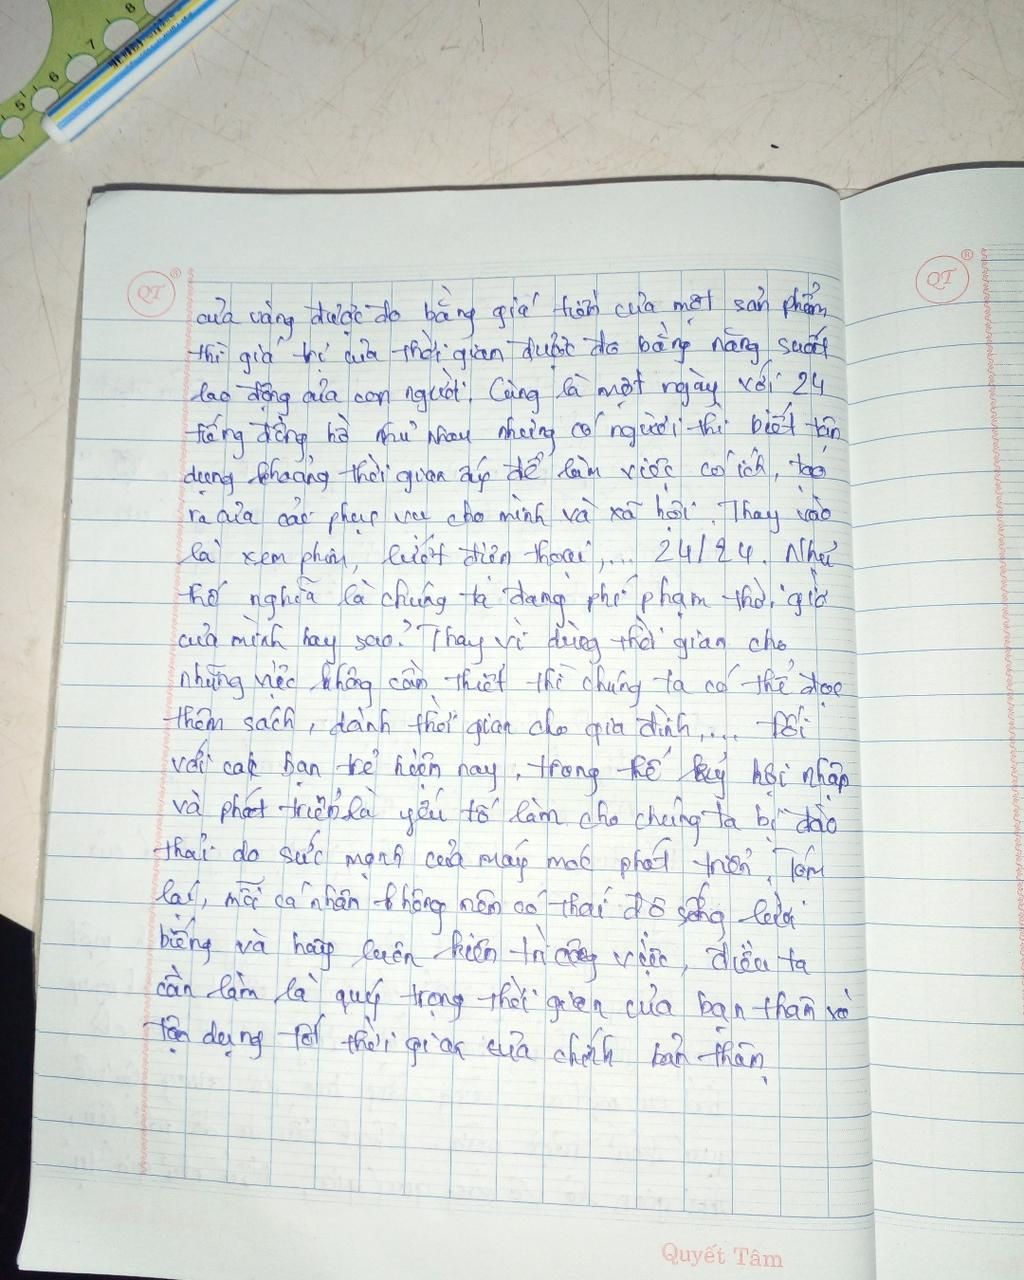 8
7
6
5
QT ®
QT ®
của vàng được đo bằng giá tiền của một sản phẩm
thì giá trị của thời gian được đo bằng năng suất
lao động của con người. Cùng là một ngày với 24
tiếng đồng hồ như nhau nhưng có người thì biết tận
dụng khoảng thời gian ấy để làm việc có ích, tạo
ra của cải phục vụ cho mình và xã hội. Thay vào
là xem phim, lướt điện thoại,... 24/24. Như
thế nghĩa là chúng ta đang phí phạm thời giờ
của mình hay sao? Thay vì dùng thời gian cho
những việc không cần thiết thì chúng ta có thể đọc
thêm sách, dành thời gian cho gia đình,... Đối
với các bạn trẻ hiện nay, trong thế kỷ hội nhập
và phát triển là yếu tố làm cho chúng ta bị đào
thải do sức mạnh của máy móc phát triển. Tóm
lại, mỗi cá nhân không nên có thái độ sống lười
biếng và hãy luôn kiên trì công việc, điều ta
cần làm là quý trọng thời gian của bạn thân và
tận dụng tốt thời gian của chính bản thân.
Quyết Tâm